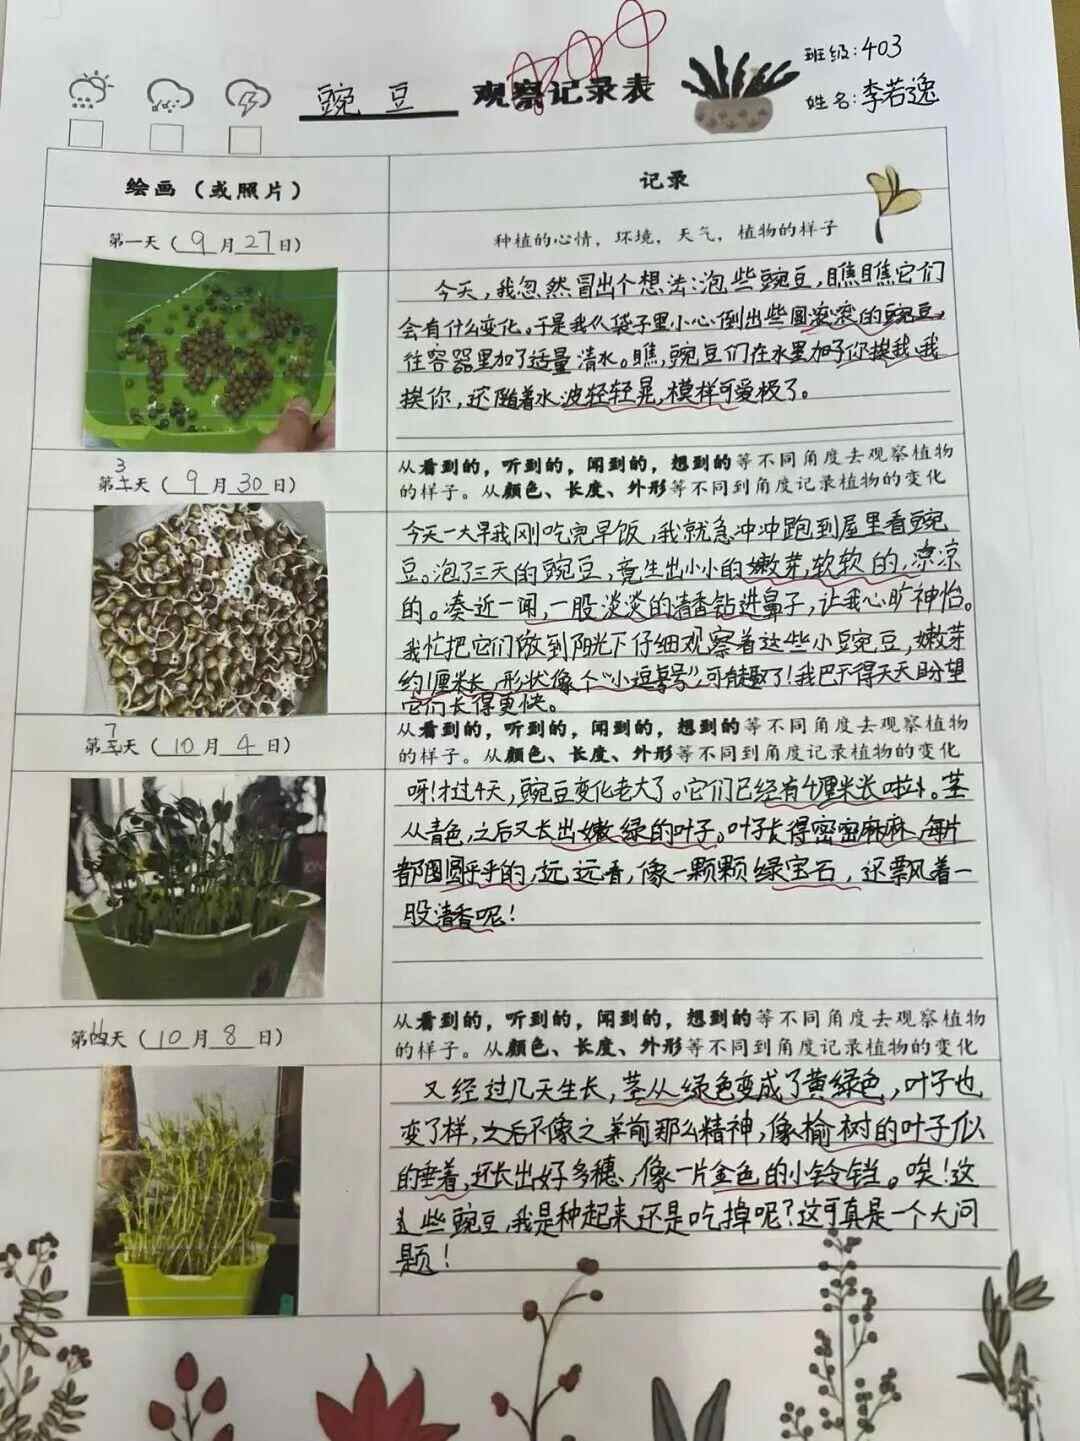 班级:403
豌豆 观察记录表
姓名:李若逸
绘画（或照片）
记录
第一天（9月27日）
种植的心情，环境，天气，植物的样子
今天，我忽然冒出个想法：泡些豌豆，瞧瞧它们
会有什么变化。于是我从袋子里小心倒出些圆滚滚的豌豆，
往容器里加了适量清水。瞧，豌豆们在水里
你挨我，我
挨你，还随着水波轻轻晃，模样可爱极了。
第3天（9月30日）
从看到的，听到的，闻到的，想到的等不同角度去观察植物
的样子。从颜色、长度、外形等不同到角度记录植物的变化
今天一大早我刚吃完早饭，我就急冲冲跑到屋里看豌
豆。泡了三天的豌豆，竟生出小小的嫩芽，软软的，凉凉
的。凑近一闻，一股淡淡的清香钻进鼻子，让我心旷神怡。
我忙把它们放到阳光下仔细观察着这些小豌豆，嫩芽
约1厘米长，形状像个“小逗号”，可有趣了！我巴不得天天盼望
它们长得更快。
第7天（10月4日）
从看到的，听到的，闻到的，想到的等不同角度去观察植物
的样子。从颜色、长度、外形等不同到角度记录植物的变化
呀！才过4天，豌豆变化老大了。它们已经有4厘米长啦！茎
从青色，之后又长出嫩绿的叶子。叶子长得密密麻麻，每片
都圆圆乎乎的，远远看，像一颗颗绿宝石，还飘着一
股清香呢！
第天（10月8日）
从看到的，听到的，闻到的，想到的等不同角度去观察植物
的样子。从颜色、长度、外形等不同到角度记录植物的变化
又经过几天生长，茎从绿色变成了黄绿色，叶子也
变了样，之后不像之前那么精神，像榆树的叶子似
的垂着，还长出好多穗，像一片金色的小铃铛。唉！这
些豌豆，我是种起来还是吃掉呢？这可真是一个大问
题！